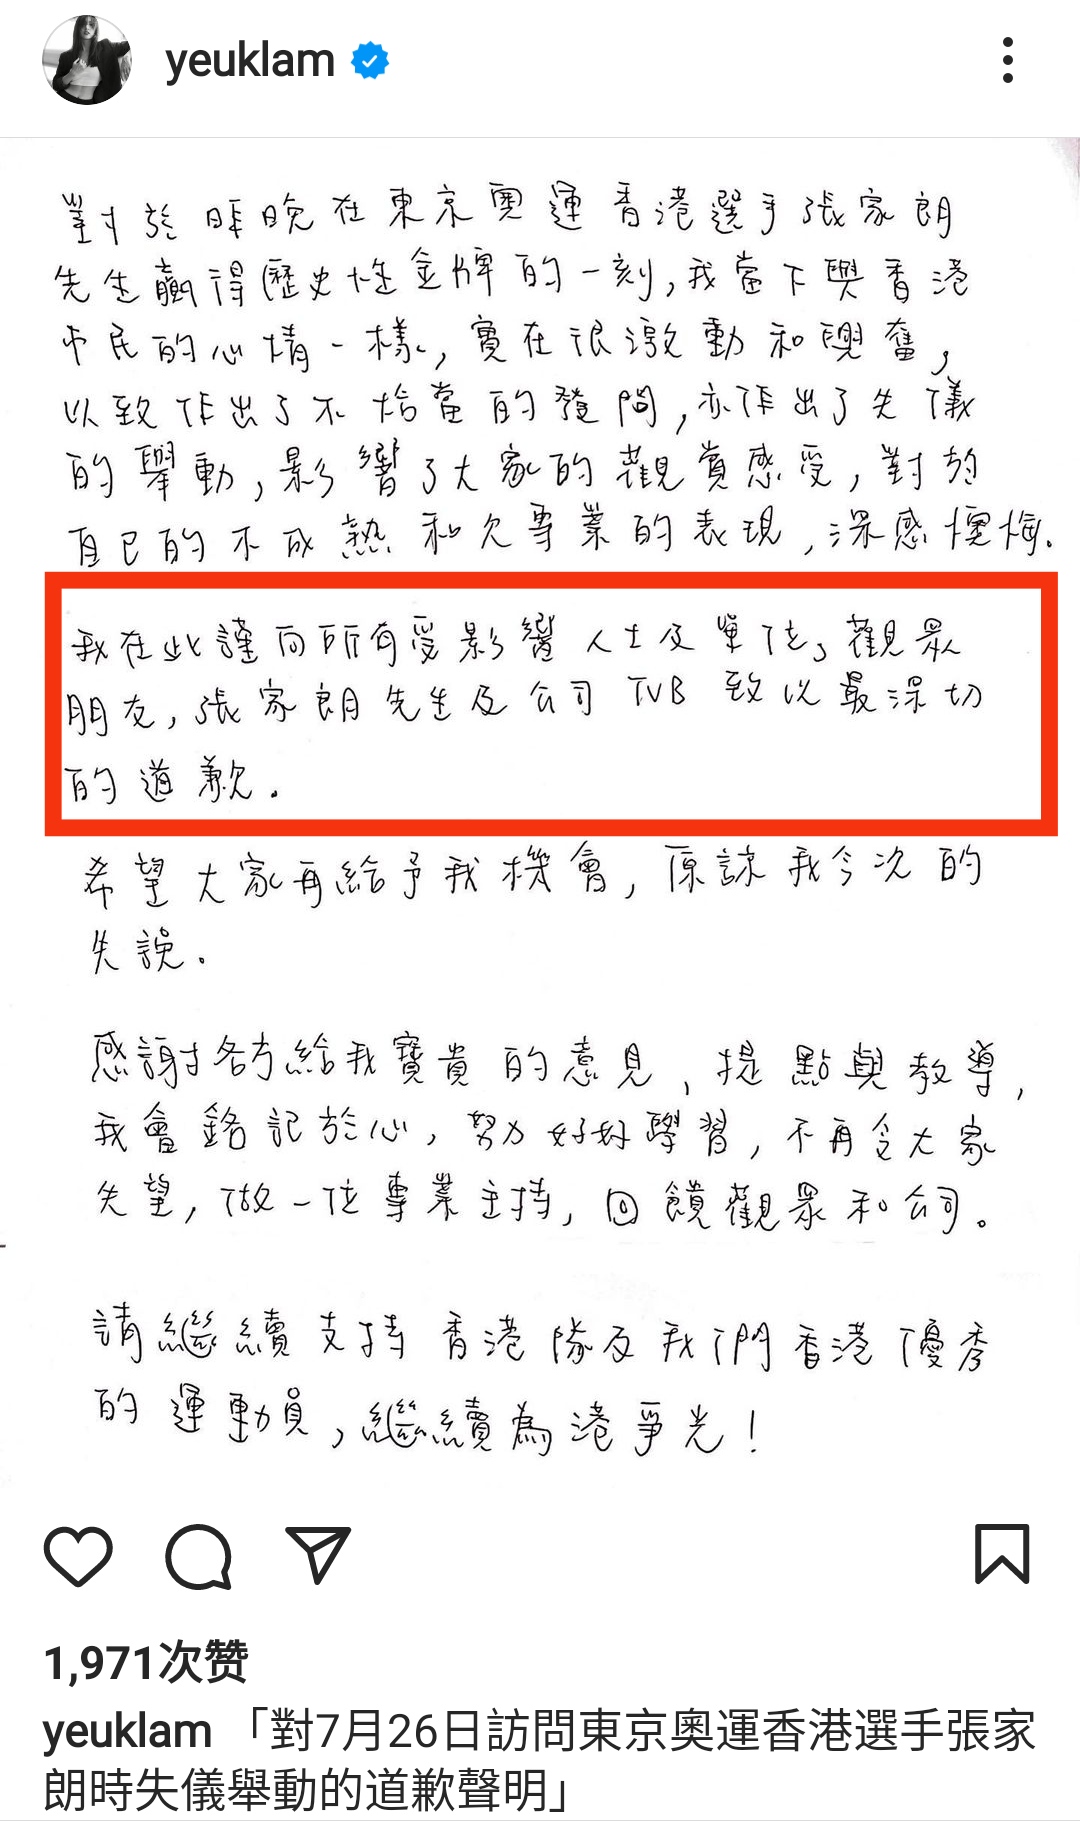 yeuklam
對於昨晚在東京奧運香港選手張家朗
先生贏得歷史性金牌的一刻,我當下與香港
市民的心情一樣,實在很激動和興奮,
以致作出了不恰當的發問,亦作出了失儀
的舉動,影響了大家的觀賞感受,對於
自己的不成熟和欠專業的表現,深感懊悔.
我在此謹向所有受影響人士及單位,觀眾
朋友,張家朗先生及公司TVB致以最深切
的道歉.
希望大家再給予我機會,原諒我今次的
失誤.
感謝各方給我寶貴的意見,提點與教導,
我會銘記於心,努力好好學習,不再令大家
失望,做一位專業主持,回饋觀眾和公司。
請繼續支持香港隊及我們香港優秀
的運動員,繼續為港爭光!
1,971次赞
yeuklam「對7月26日訪問東京奧運香港選手張家
朗時失儀舉動的道歉聲明」